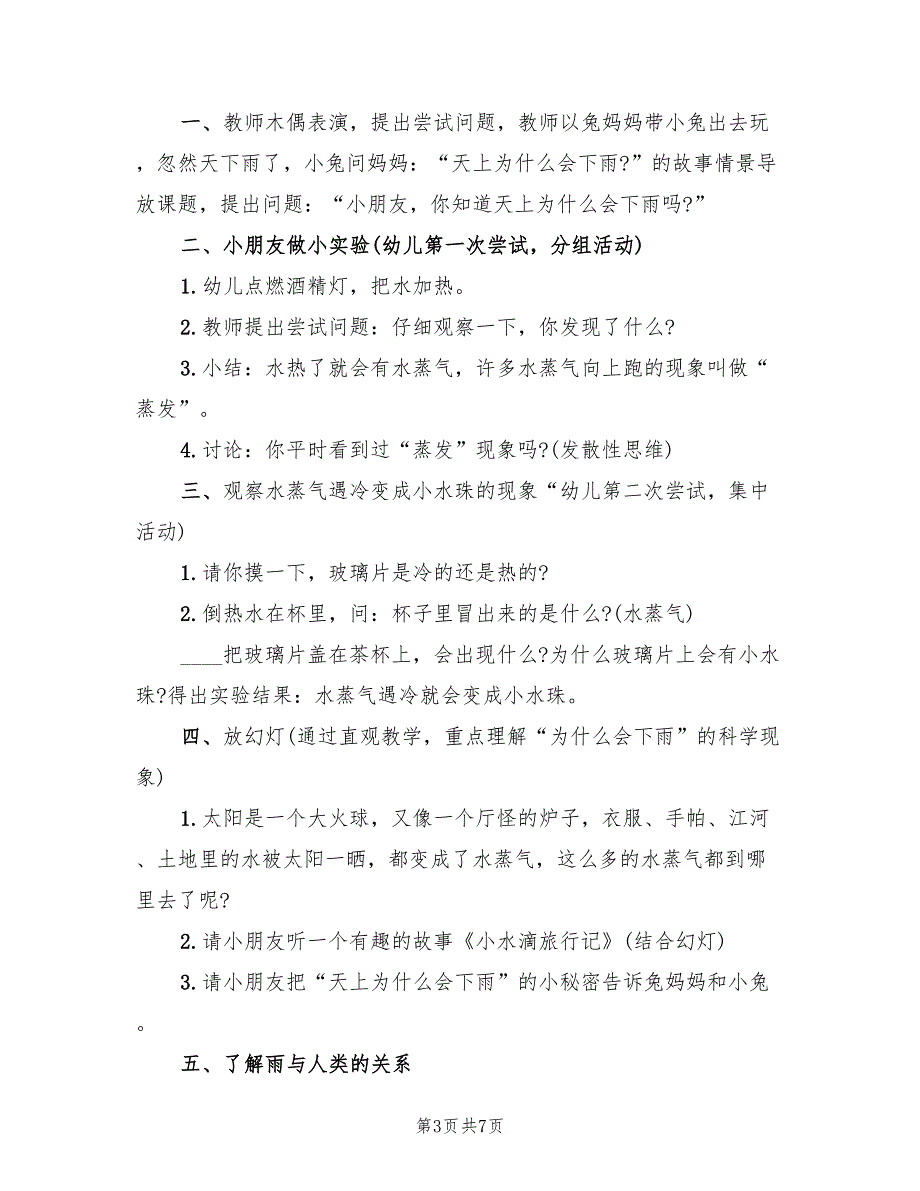 一、教师木偶表演，提出尝试问题，教师以兔妈妈带小兔出去玩
，忽然天下雨了，小兔问妈妈：“天上为什么会下雨?”的故事情景导
放课题，提出问题：“小朋友，你知道天上为什么会下雨吗?”
二、小朋友做小实验(幼儿第一次尝试，分组活动)
1.幼儿点燃酒精灯，把水加热。
2.教师提出尝试问题：仔细观察一下，你发现了什么?
3.小结：水热了就会有水蒸气，许多水蒸气向上跑的现象叫做“
蒸发”。
4.讨论：你平时看到过“蒸发”现象吗?(发散性思维)
三、观察水蒸气遇冷变成小水珠的现象“幼儿第二次尝试，集中
活动)
1.请你摸一下，玻璃片是冷的还是热的?
2.倒热水在杯里，问：杯子里冒出来的是什么?(水蒸气)
____把玻璃片盖在茶杯上，会出现什么?为什么玻璃片上会有小水
珠?得出实验结果：水蒸气遇冷就会变成小水珠。
四、放幻灯(通过直观教学，重点理解“为什么会下雨”的科学现
象)
1.太阳是一个大火球，又像一个厅怪的炉子，衣服、手帕、江河
、土地里的水被太阳一晒，都变成了水蒸气，这么多的水蒸气都到哪
里去了呢?
2.请小朋友听一个有趣的故事《小水滴旅行记》(结合幻灯)
3.请小朋友把“天上为什么会下雨”的小秘密告诉兔妈妈和小兔
。
五、了解雨与人类的关系
第3页共7页